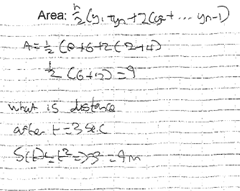 Area: h/2 (y1 + yn + 2(y2 + ... yn-1)
A = 1/2 (0+6+2(2+4)
1/2 (6+12) = 9
what is distance
after t=3 sec